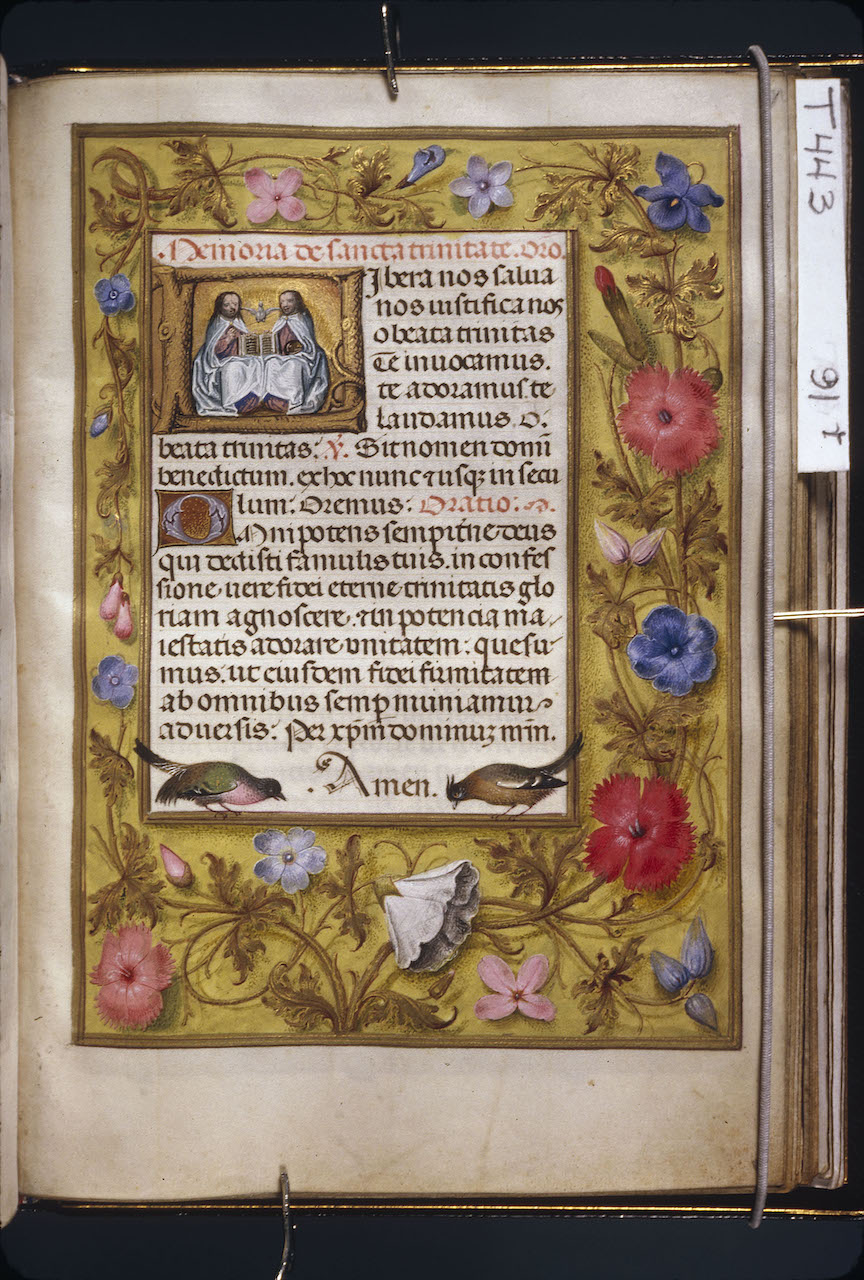 Memoria de sancta trinitate. Oro.
Libera nos salua
nos iustifica nos
o beata trinitas
Te inuocamus.
te adoramus te
laudamus o.
beata trinitas. ℣. Sit nomen domi
benedictum. ex hoc nunc ⁊ usqꝫ in secu
lum: Oremus: Oratio:
Omnipotens sempitne deus
qui dedisti famulis tuis. in confes
sione uere fidei eterne trinitatis glo
riam agnoscere. ⁊ in potencia ma
iestatis adorare vnitatem: quesu
mus. ut eiusdem fidei firmitatem
ab omnibus semp muniamur
aduersis: Per xpm dominuꝫ nrm.
Amen.
T443
91r